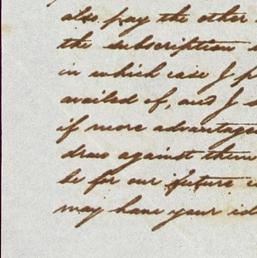 also pay the other
the subscription
in which case I
availed of, and I
if more advantage
draw against them
be for our future
may have your